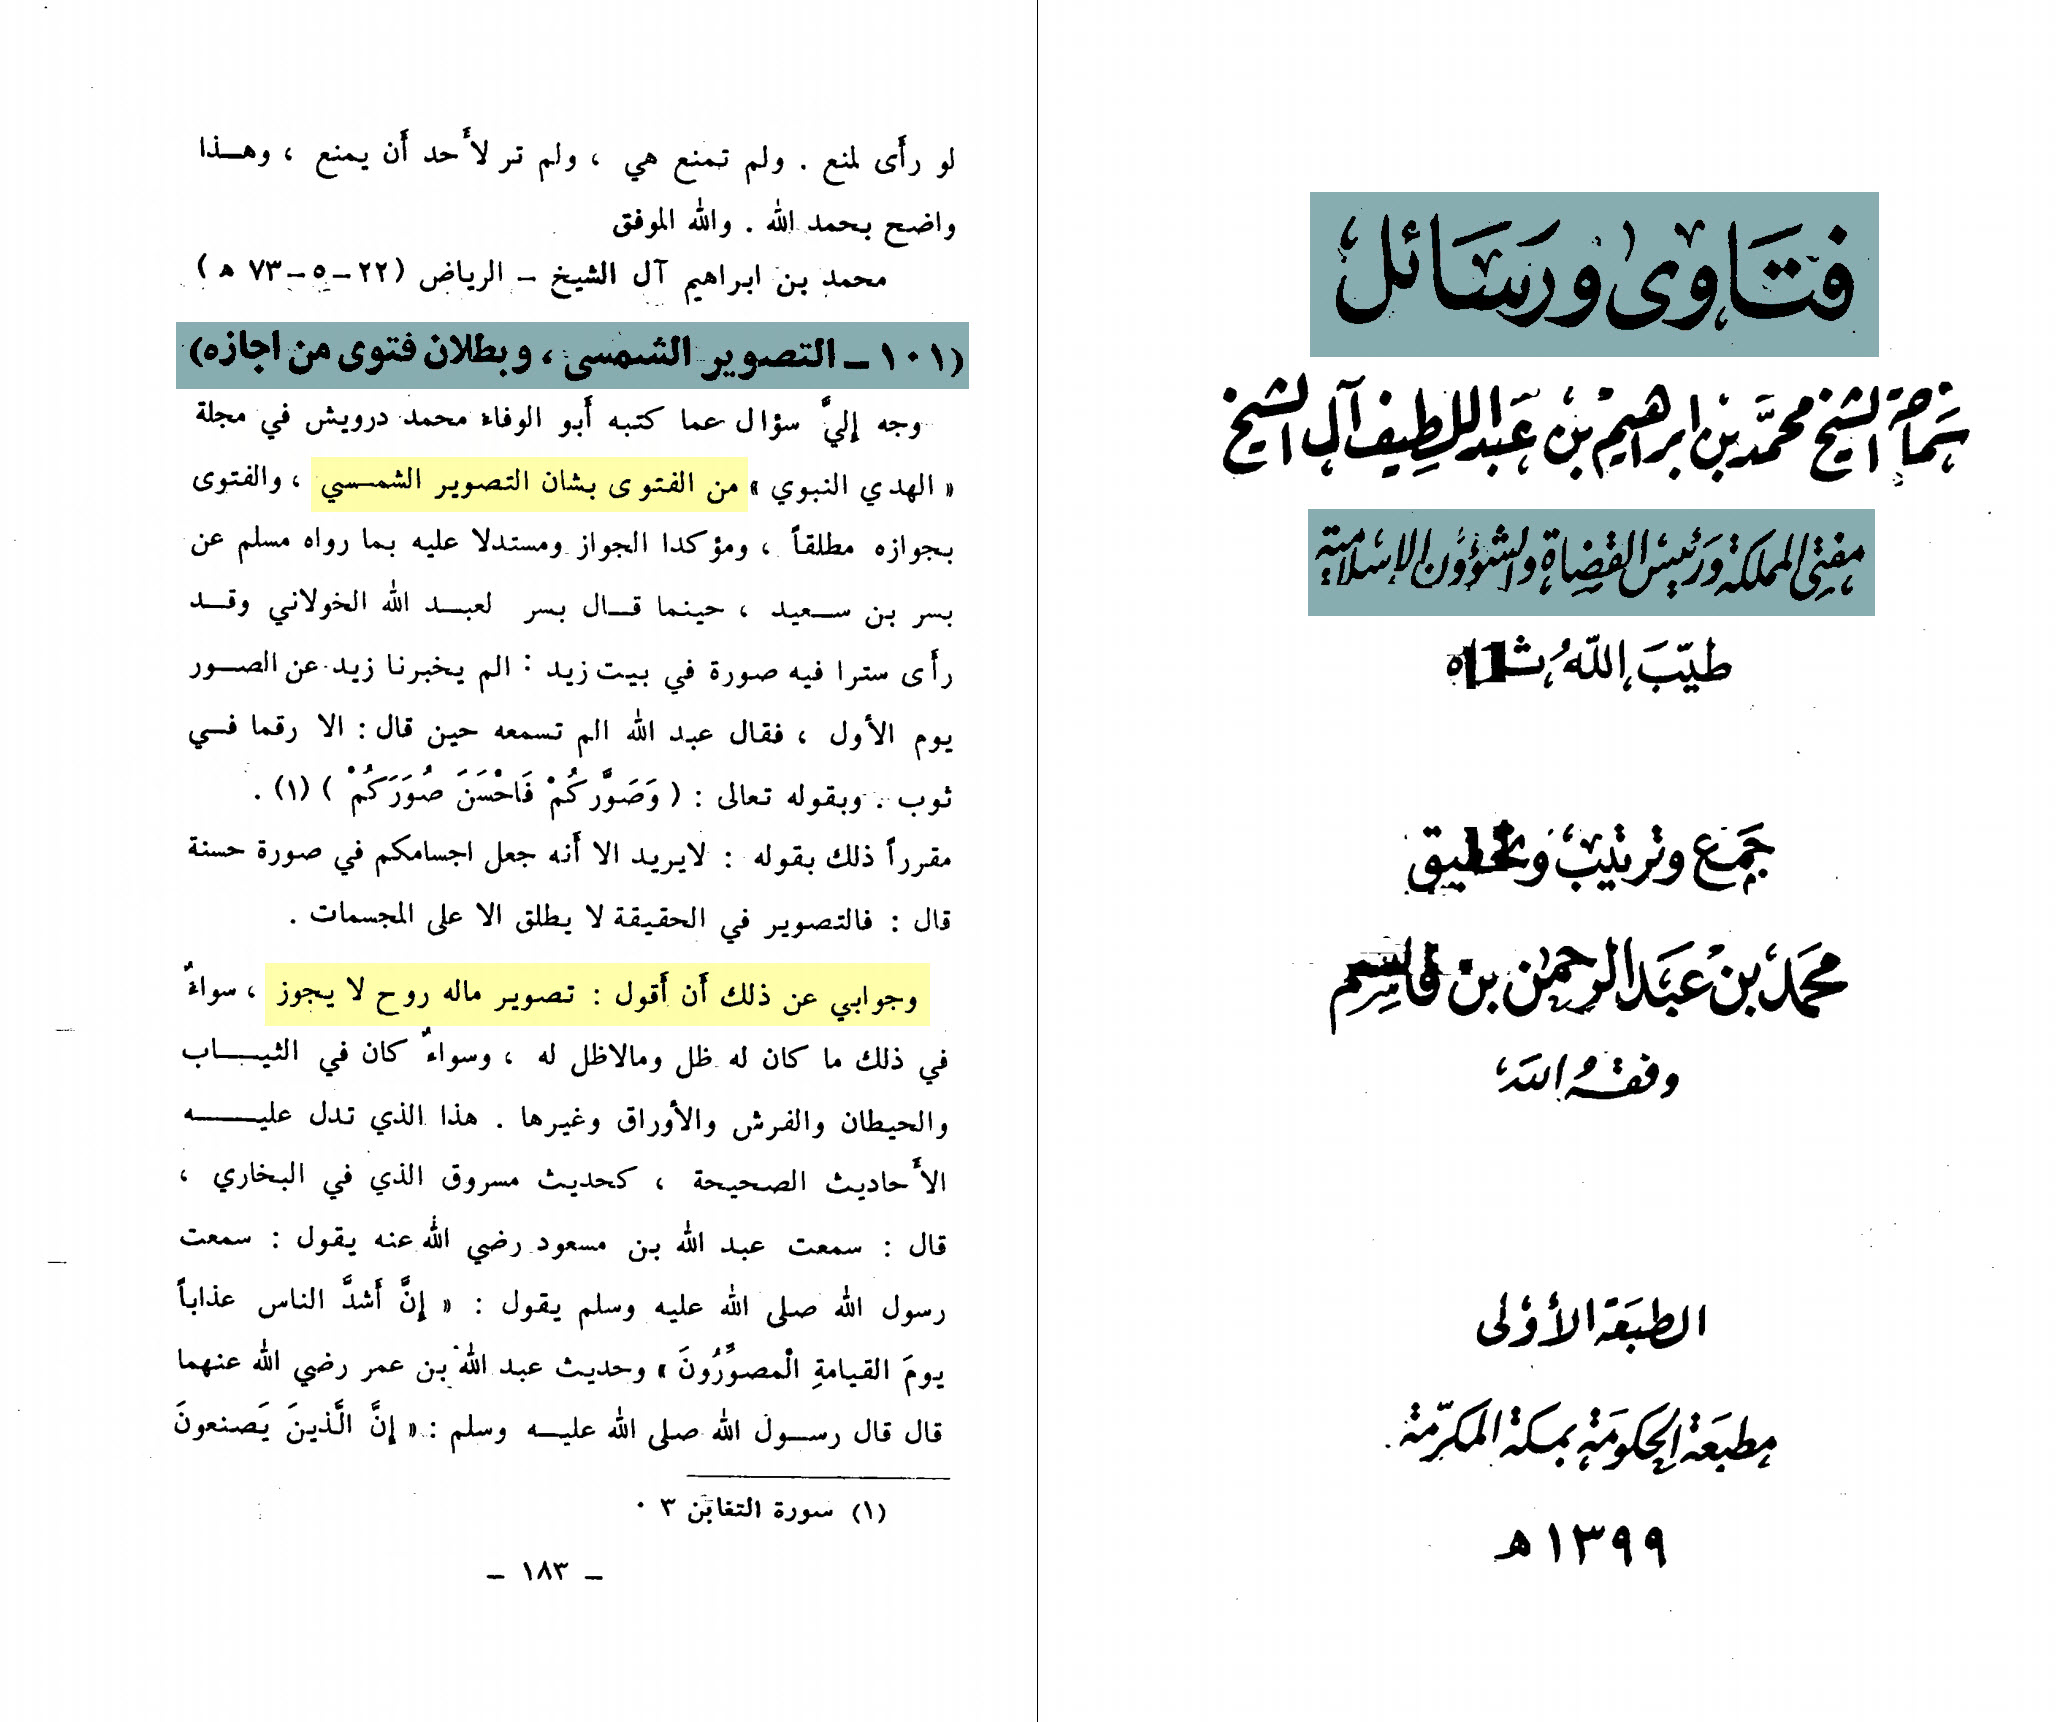 فتاوى ورسائل
سماحة الشيخ محمد بن ابراهيم بن عبد اللطيف آل الشيخ
مفتي المملكة ورئيس القضاة والشؤون الإسلامية
طيّبَ اللّهُ ثراه
جمع وترتيب وتحقيق
محمد بن عبد الرحمن بن قاسم
وفقه الله
الطبعة الأولى
مطبعة الحكومة بمكة المكرّمة
١٣٩٩ هـ
لو رأَى لمنع . ولم تمنع هي ، ولم تر لأَحد أَن يمنع ، وهـذا
واضح بحمد الله . والله الموفق
محمد بن ابراهيم آل الشيخ – الرياض (٢٢–٥–٧٣ هـ)
(١٠١ – التصوير الشمسي ، وبطلان فتوى من اجازه)
وجه إليَّ سؤال عما كتبه أَبو الوفاء محمد درويش في مجلة
« الهدي النبوي » من الفتوى بشان التصوير الشمسي ، والفتوى
بجوازه مطلقاً ، ومؤكدا الجواز ومستدلا عليه بما رواه مسلم عن
بسر بن سـعيد ، حينما قـال بسر لعبـد الله الخولاني وقـد
رأَى سترا فيه صورة في بيت زيد : الم يخبرنا زيد عن الصـور
يوم الأول ، فقال عبد الله الم تسمعه حين قال : الا رقما فـي
ثوب . وبقوله تعالى : ( وَصَوَّرَكُمْ فَاحْسَنَ صُوَرَكُمْ ) (١) .
مقرراً ذلك بقوله : لايريد الا أَنه جعل اجسامكم في صورة حسنة
قال : فالتصوير في الحقيقة لا يطلق الا على المجسمات .
وجوابي عن ذلك أَن أَقول : تصوير ماله روح لا يجوز ، سواءٌ
في ذلك ما كان له ظل ومالاظل له ، وسواءٌ كان في الثيـاب
والحيطان والفرش والأوراق وغيرها . هذا الذي تدل عليـه
الأَحاديث الصحيحة ، كحديث مسروق الذي في البخاري ،
قال : سمعت عبد الله بن مسعود رضي الله عنه يقول : سمعت
رسول الله صلى الله عليه وسلم يقول : « إِنَّ أَشدَّ الناس عذاباً
يومَ القيامةِ الْمصوِّرُونَ » وحديث عبد الله بن عمر رضي الله عنهما
قال قال رسـول الله صلى الله عليـه وسلم : « إِنَّ الَّذينَ يَصنعونَ
(١) سورة التغابن ٣ ٠
– ١٨٣ –